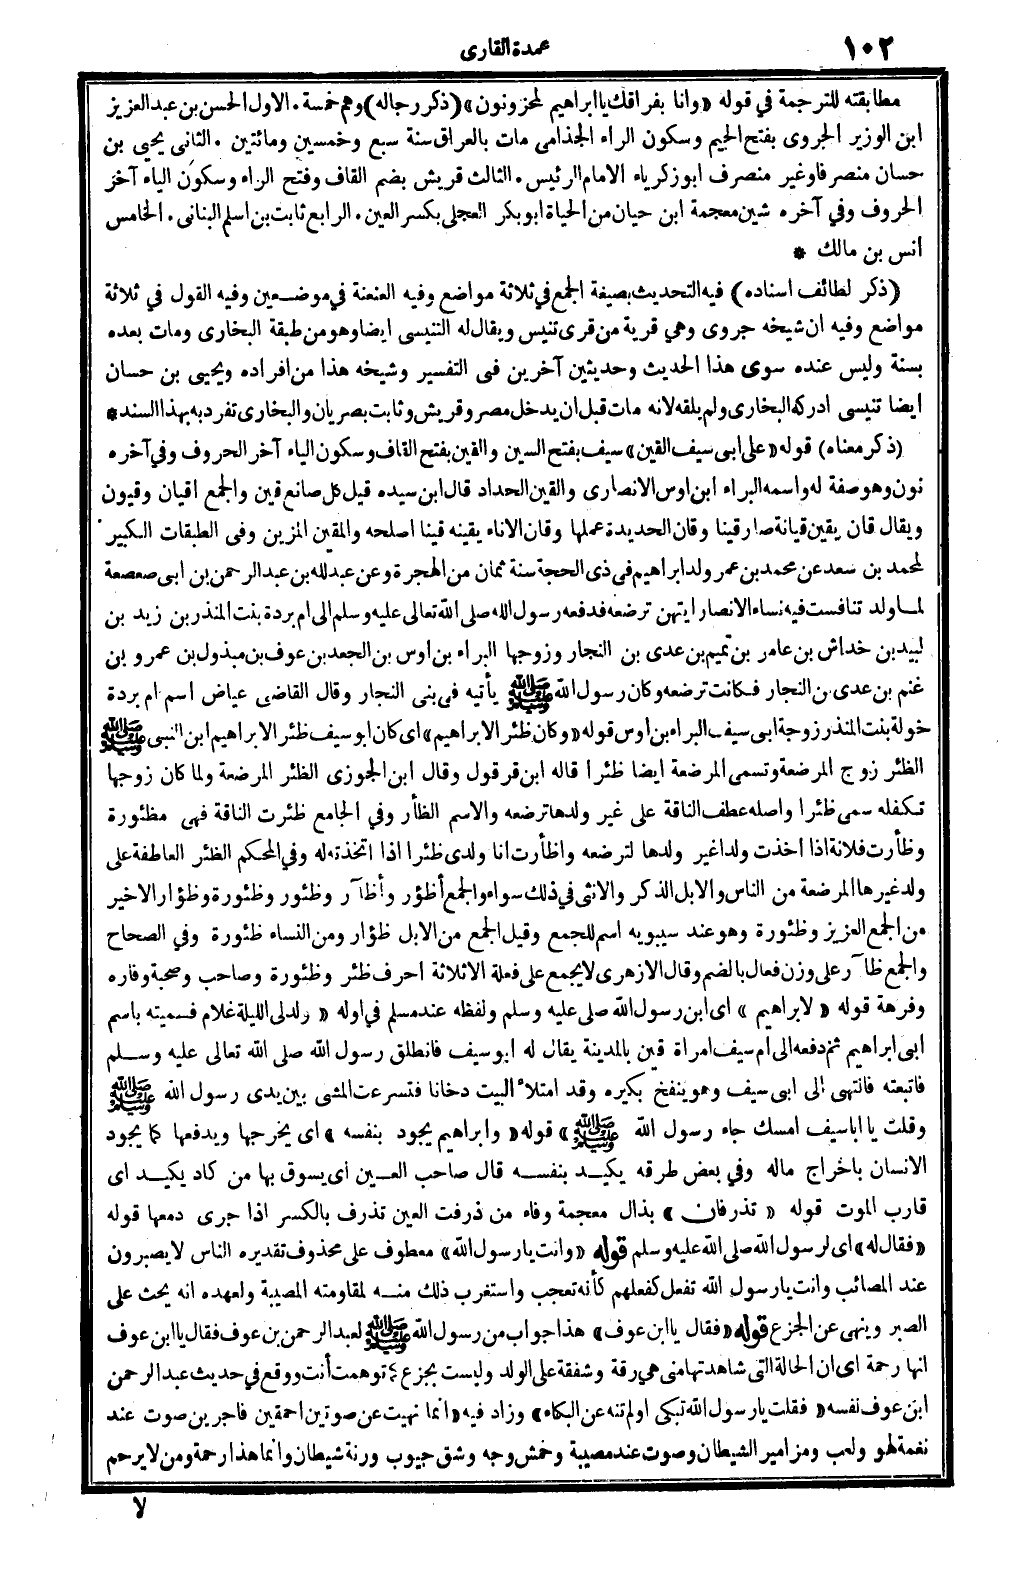 ١٠٢
عمدة القارى
مطابقته للترجمة في قوله «وانا بفراقك يا ابراهيم لمحزونون» (ذكر رجاله) وهم خمسة. الاول الحسن بن عبد العزيز
ابن الوزير الجروى بفتح الجيم وسكون الراء الجذامى مات بالعراق سنة سبع وخمسين ومائتين. الثانى يحيى بن
حسان منصرفا وغير منصرف ابو زكرياء الامام الرئيس. الثالث قريش بضم القاف وفتح الراء وسكون الياء آخر
الحروف وفي آخره شين معجمة ابن حيان من الحياة ابو بكر العجلى بكسر العين. الرابع ثابت بن اسلم البنانى. الخامس
أنس بن مالك *
(ذكر لطائف اسناده) فيه التحديث بصيغة الجمع في ثلاثة مواضع وفيه العنعنة في موضعين وفيه القول في ثلاثة
مواضع وفيه ان شيخه جروى وهي قرية من قرى تنيس ويقال له التنيسى ايضا وهو من طبقة البخارى ومات بعده
بسنة وليس عنده سوى هذا الحديث وحديثين آخرين في التفسير وشيخه هذا من افراده ويحيى بن حسان
ايضا تنيسى ادركه البخارى ولم يلقه لانه مات قبل ان يدخل مصر وقريش وثابت بصريان والبخارى تفرد به بهذا السند *
(ذكر معناه) قوله «على ابى سيف القين» سيف بفتح السين والقين بفتح القاف وسكون الياء آخر الحروف وفي آخره
نون وهو صفة له واسمه البراء ابن اوس الانصارى والقين الحداد قال ابن سيده قيل كل صانع قين والجمع اقيان وقيون
ويقال قان يقين قيانة صار قينا وقان الحديدة عملها وقان الاناء يقينه قينا اصلحه والمقين المزين وفى الطبقات الكبير
لمحمد بن سعد عن محمد بن عمر ولد ابراهيم فى ذى الحجة سنة ثمان من الهجرة وعن عبدالله بن عبد الرحمن بن ابى صعصعة
لما ولد تنافست فيه نساء الانصار ايتهن ترضعه فدفعه رسول الله صلى الله تعالى عليه وسلم الى ام بردة بنت المنذر بن زيد بن
لبيد بن خداش بن عامر بن تميم بن عدى بن النجار وزوجها البراء بن اوس بن الجعد بن عوف بن مبذول بن عمرو بن
غنم بن عدى بن النجار فكانت ترضعه وكان رسول الله ﷺ يأتيه فى بنى النجار وقال القاضى عياض اسم ام بردة
خولة بنت المنذر زوجة ابى سيف البراء بن اوس قوله «وكان ظئرا لابراهيم» اى كان ابو سيف ظئرا لابراهيم ابن النبى ﷺ
الظئر زوج المرضعة وتسمى المرضعة ايضا ظئرا قاله ابن قرقول وقال ابن الجوزى الظئر المرضعة ولما كان زوجها
تكفله سمى ظئرا واصله عطف الناقة على غير ولدها ترضعه والاسم الظأر وفي الجامع ظئرت الناقة فهى مظئورة
وظأرت فلانة اذا اخذت ولدا غير ولدها لترضعه واظأرت انا ولدى ظئرا اذا اتخذته له وفي المحكم الظئر العاطفة على
ولد غيرها المرضعة من الناس والابل الذكر والانثى في ذلك سواء والجمع أظؤر وأظآر وظئور وظئورة وظؤار الاخير
من الجمع العزيز وظئورة وهو عند سيبويه اسم للجمع وقيل الجمع من الابل ظؤار ومن النساء ظئورة وفي الصحاح
والجمع ظآر على وزن فعال بالضم وقال الازهرى لا يجمع على فعلة الا ثلاثة احرف ظئر وظئورة وصاحب وصحبة وفاره
وفرهة قوله «لابراهيم» اى ابن رسول الله صلى عليه وسلم ولفظه عند مسلم في اوله «ولد لى الليلة غلام فسميته باسم
ابى ابراهيم ثم دفعه الى ام سيف امرأة قين بالمدينة يقال له ابو سيف فانطلق رسول الله صلى الله تعالى عليه وسلم
فاتبعته فانتهى الى ابى سيف وهو ينفخ بكيره وقد امتلأ البيت دخانا فتسرعت المشى بين يدى رسول الله ﷺ
وقلت يا اباسيف امسك جاء رسول الله ﷺ» قوله «وابراهيم يجود بنفسه» اى يخرجها ويدفعها كما يجود
الانسان باخراج ماله وفي بعض طرقه يكيد بنفسه قال صاحب العين أى يسوق بها من كاد يكيد اى
قارب الموت قوله «تذرفان» بذال معجمة وفاء من ذرفت العين تذرف بالكسر اذا جرى دمعها قوله
«فقال له» اى لرسول الله صلى الله عليه وسلم قوله «وانت يا رسول الله» معطوف على محذوف تقديره الناس لا يصبرون
عند المصائب وانت يا رسول الله تفعل كفعلهم كأنه تعجب واستغرب ذلك منه لمقاومته المصيبة ولعهده انه يحث على
الصبر وينهى عن الجزع قوله «فقال يا ابن عوف» هذا جواب من رسول الله ﷺ لعبد الرحمن بن عوف فقال يا ابن عوف
انها رحمة اى ان الحالة التى شاهدتها منى هى رقة وشفقة على الولد وليست بجزع كما توهمت أنت ووقع في حديث عبد الرحمن
ابن عوف نفسه «فقلت يا رسول الله تبكى اولم تنه عن البكاء» وزاد فيه «انما نهيت عن صوتين احمقين فاجرين صوت عند
نغمة لهو ولعب ومزامير الشيطان وصوت عند مصيبة وخمش وجه وشق جيوب ورنة شيطان وانما هذا رحمة ومن لا يرحم
لا